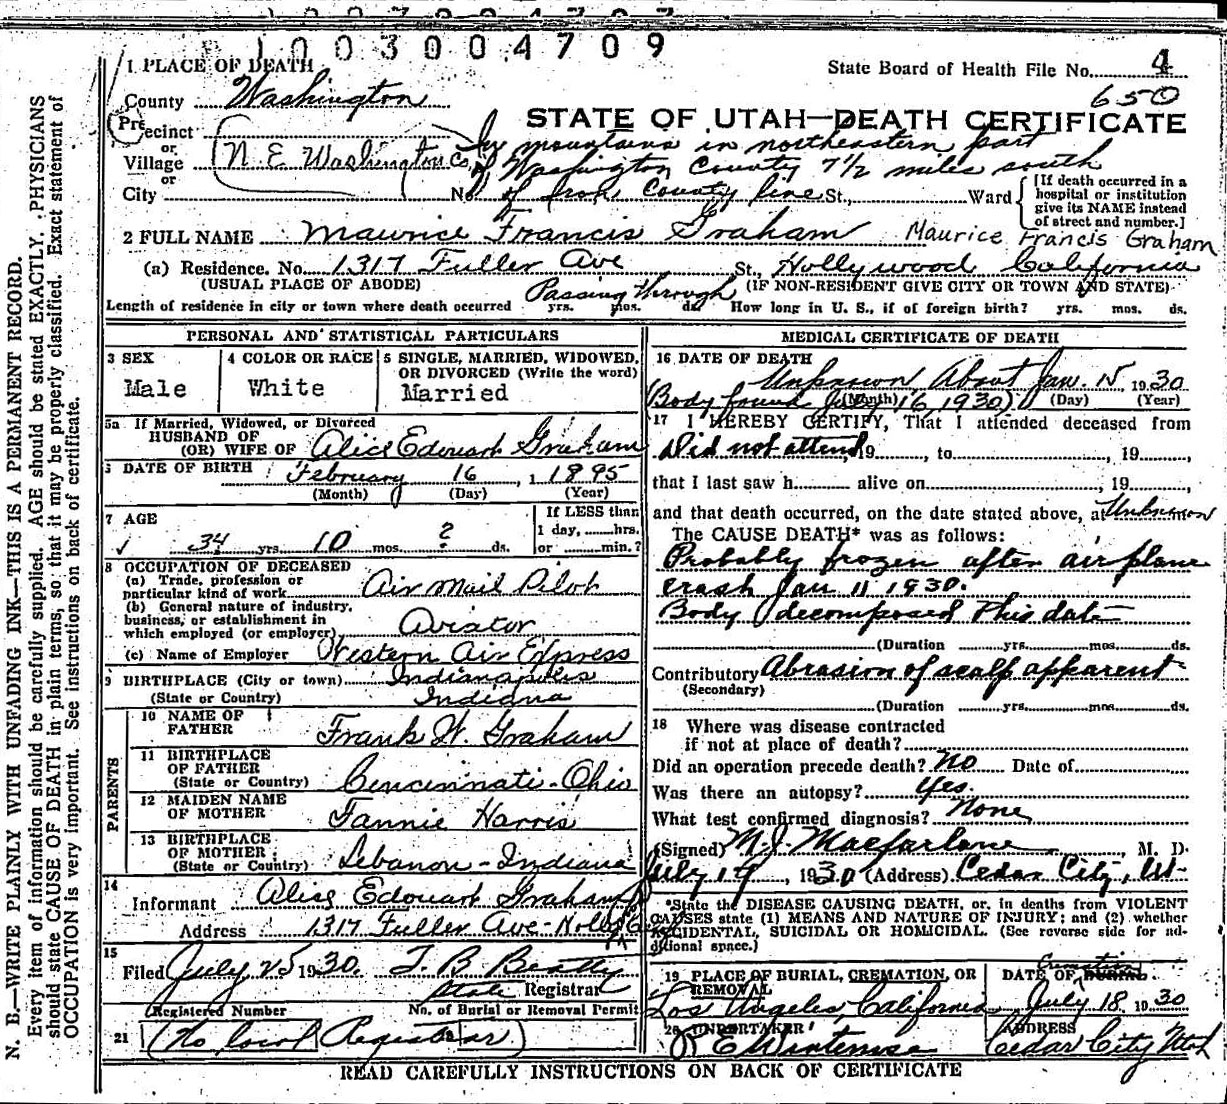 1003004709
1 PLACE OF DEATH
State Board of Health File No. 4
650
County Washington
STATE OF UTAH—DEATH CERTIFICATE
Precinct
or
Village N. E. Washington Co.
or
City
In mountains in northeastern part
of Washington County 7 1/2 miles south
No. of Iron County line St., Ward
[If death occurred in a
hospital or institution
give its NAME instead
of street and number.]
2 FULL NAME Maurice Francis Graham Maurice Francis Graham
(a) Residence. No. 1317 Fuller Ave St., Hollywood California
(USUAL PLACE OF ABODE) (IF NON-RESIDENT GIVE CITY OR TOWN AND STATE)
Passing through
Length of residence in city or town where death occurred yrs. mos. ds. How long in U. S., if of foreign birth? yrs. mos. ds.
PERSONAL AND STATISTICAL PARTICULARS
3 SEX
Male
4 COLOR OR RACE
White
5 SINGLE, MARRIED, WIDOWED,
OR DIVORCED (Write the word)
Married
5a If Married, Widowed, or Divorced
HUSBAND OF
(OR) WIFE OF Alice Edouart Graham
6 DATE OF BIRTH February 16, 1895
(Month) (Day) (Year)
7 AGE
34 yrs. 10 mos. ? ds.
If LESS than
1 day, hrs.
or min.?
8 OCCUPATION OF DECEASED
(a) Trade, profession or
particular kind of work Air Mail Pilot
(b) General nature of industry,
business, or establishment in
which employed (or employer) Aviator
(c) Name of Employer Western Air Express
9 BIRTHPLACE (City or town) Indianapolis
(State or Country) Indiana
PARENTS
10 NAME OF
FATHER Frank W. Graham
11 BIRTHPLACE
OF FATHER
(State or Country) Cencinnati-Ohio
12 MAIDEN NAME
OF MOTHER Fannie Harris
13 BIRTHPLACE
OF MOTHER
(State or Country) Lebanon-Indiana
14
Informant Alice Edouart Graham
Address 1317 Fuller Ave-Holly
15
Filed July 25 1930. T. B. Beatty
State Registrar
Registered Number No. of Burial or Removal Permit
21 (No local Registrar)
MEDICAL CERTIFICATE OF DEATH
16 DATE OF DEATH
Unknown About Jan. 15 1930
(Body found July 16, 1930)
(Month) (Day) (Year)
17 I HEREBY CERTIFY, That I attended deceased from
Did not attend, 19 , to , 19 ,
that I last saw h alive on , 19 ,
and that death occurred, on the date stated above, at Unknown
The CAUSE DEATH* was as follows:
Probably frozen after airplane
crash Jan 11 1930.
Body decomposed this date
(Duration yrs. mos. ds.
Contributory Abrasion of scalp apparent
(Secondary)
(Duration yrs. mos. ds.
18 Where was disease contracted
if not at place of death?
Did an operation precede death? No Date of
Was there an autopsy? Yes.
What test confirmed diagnosis? None
(Signed) M. J. Macfarlane, M. D.
July 17, 1930 (Address) Cedar City, Ut-
*State the DISEASE CAUSING DEATH, or, in deaths from VIOLENT
CAUSES state (1) MEANS AND NATURE OF INJURY; and (2) whether
ACCIDENTAL, SUICIDAL OR HOMICIDAL. (See reverse side for ad-
ditional space.)
19 PLACE OF BURIAL, CREMATION, OR
REMOVAL
Los Angeles, California
Cremation
DATE OF BURIAL
July 18 1930
20 UNDERTAKER
ADDRESS
Cedar City Utah
READ CAREFULLY INSTRUCTIONS ON BACK OF CERTIFICATE
N. B.—WRITE PLAINLY WITH UNFADING INK—THIS IS A PERMANENT RECORD.
Every item of information should be carefully supplied. AGE should be stated EXACTLY. PHYSICIANS
should state CAUSE OF DEATH in plain terms, so that it may be properly classified. Exact statement of
OCCUPATION is very important. See instructions on back of certificate.